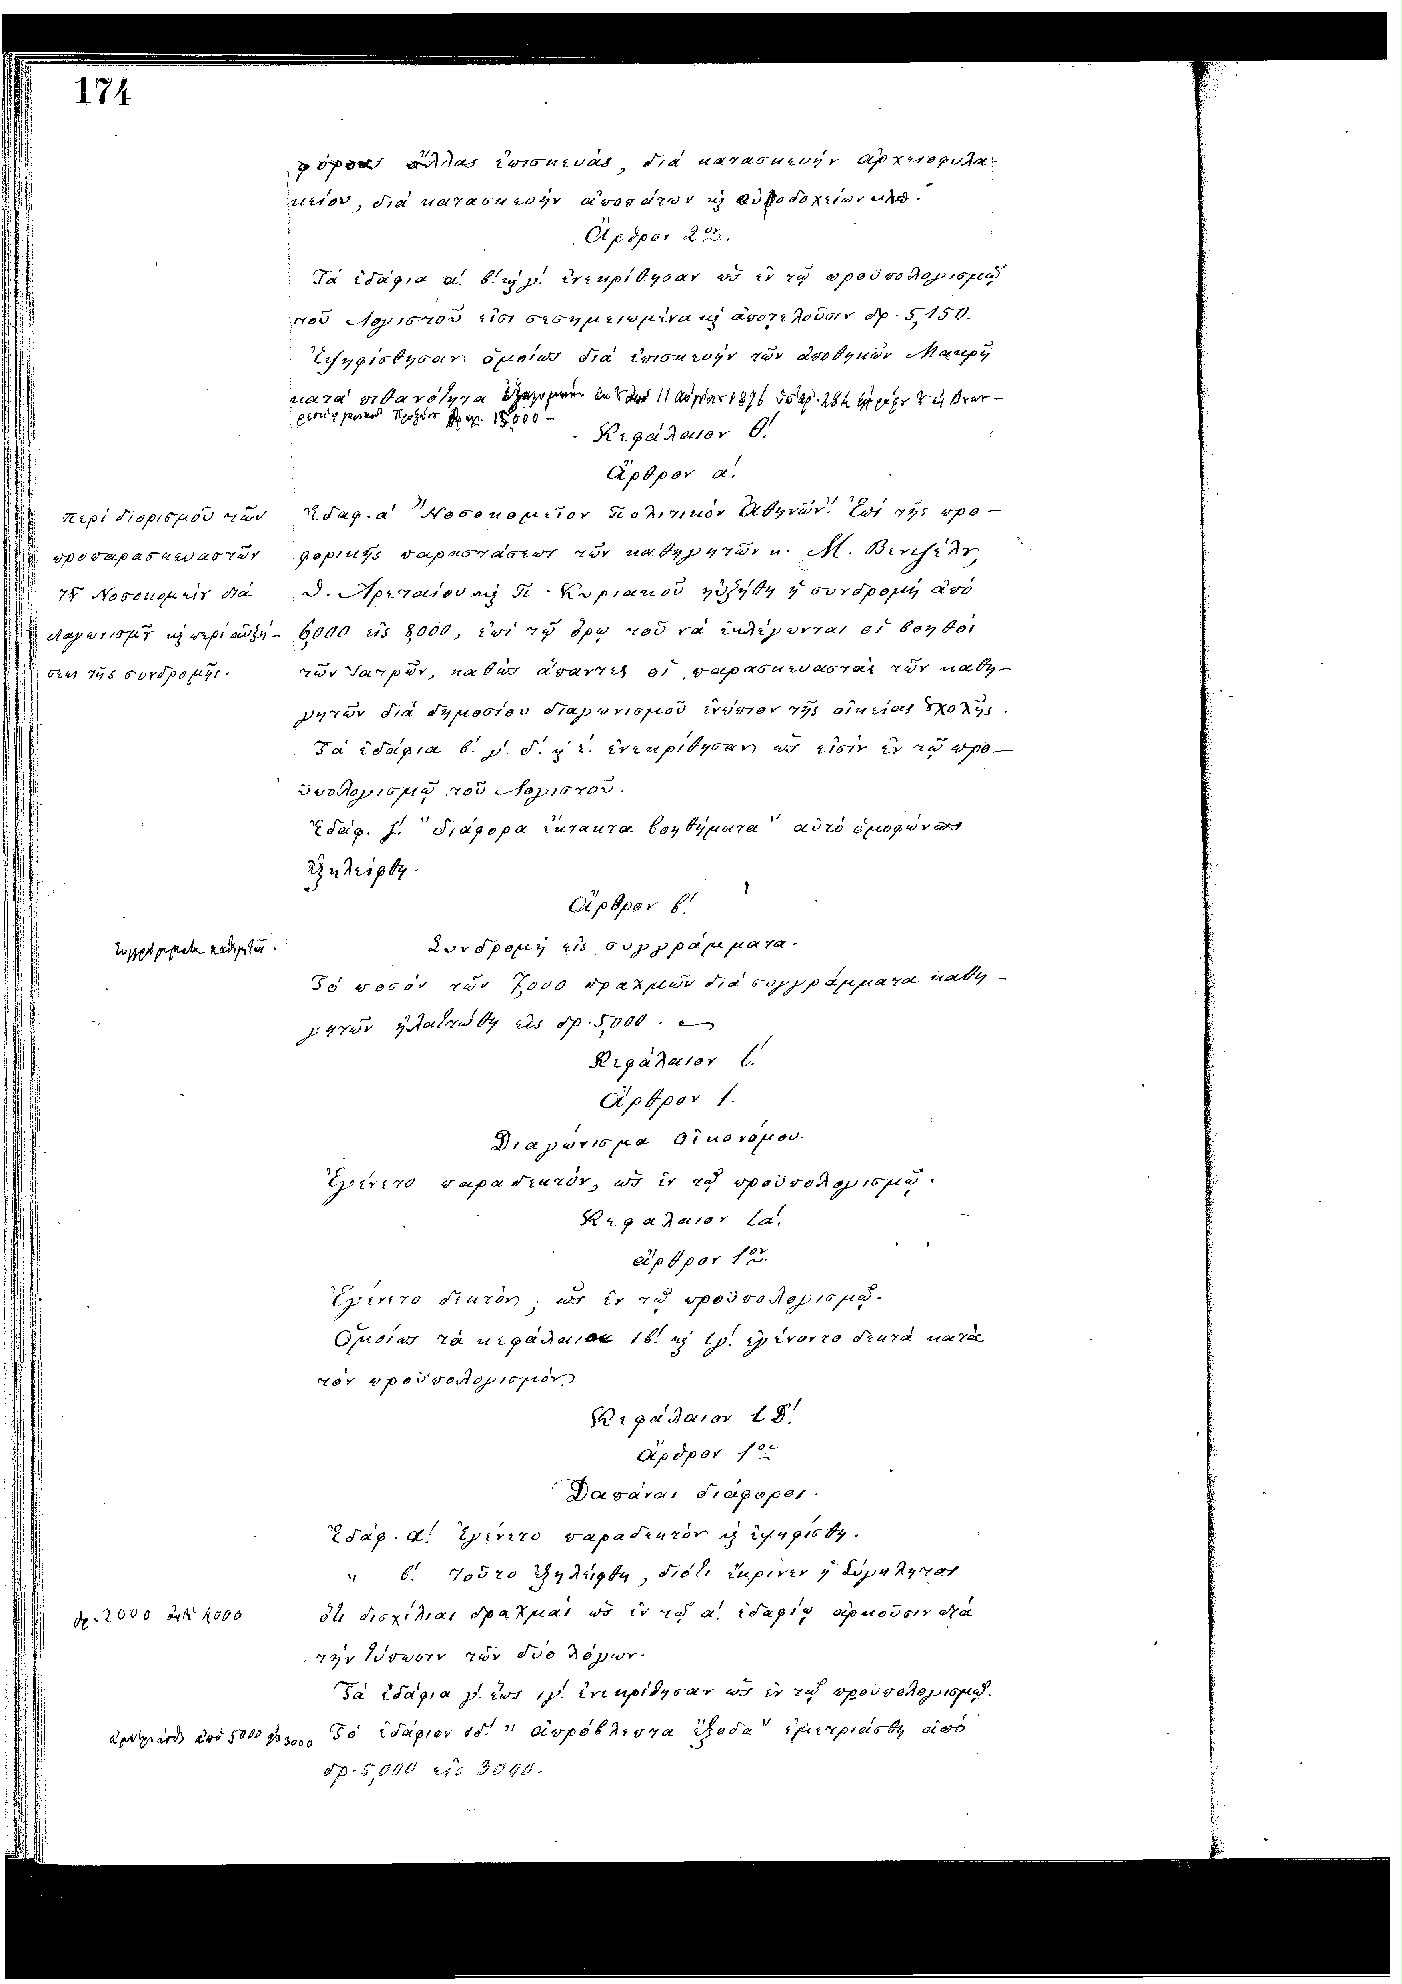 174
φόρους ἄλλας ἐπισκευάς, διά κατασκευήν ἀρχειοφυλα-
κείου, διά κατασκευήν ἀποπάτων κ̀ οὐροδοχείων κλπ.
Ἄρθρον 2ον.
Τά ἐδάφια α΄. β΄. κ̀ γ΄. ἐνεκρίθησαν ὡς ἐν τῷ προϋπολογισμῷ
τοῦ Λογιστοῦ εἰσι σεσημειωμένα κ̀ ἀποτελοῦσιν δρ. 5,150.
Ἐψηφίσθησαν ὁμοίως διά ἐπισκευήν τῶν ἀποθηκῶν Μακρῆ
κατά πιθανότητα 11 1876 ἀρ. 282
δρ. 15,000 -
Κεφάλαιον Θ΄.
Ἄρθρον α΄.
Περί διορισμοῦ τῶν
προπαρασκευαστῶν
τοῦ Νοσοκομείου διά
διαγωνισμοῦ κ̀ περί αὐξή-
σεως τῆς συνδρομῆς.
Ἐδαφ. α΄ "Νοσοκομεῖον Πολιτικόν Ἀθηνῶν". Ἐπί τῆς προ-
φορικῆς παραστάσεως τῶν καθηγητῶν κ. Μ. Βενιζέλου,
Θ. Ἀρεταίου κ̀ Π. Κυριακοῦ ηὐξήθη ἡ συνδρομή ἀπό
6,000 εἰς 8,000, ἐπί τῷ ὅρῳ τοῦ νά ἐκλέγωνται οἱ βοηθοί
τῶν Ἰατρῶν, καθώς ἅπαντες οἱ παρασκευασταί τῶν καθη-
γητῶν διά δημοσίου διαγωνισμοῦ ἐνώπιον τῆς οἰκείας Σχολῆς.
Τά ἐδάφια β΄. γ΄. δ΄. κ̀ ε΄. ἐνεκρίθησαν ὡς εἰσίν ἐν τῷ προ-
ϋπολογισμῷ τοῦ Λογιστοῦ.
Ἐδάφ. ς΄. "διάφορα ἔκτακτα βοηθήματα" αὐτό ὁμοφώνως
ἐξηλείφθη.
Ἄρθρον β΄.
Συγγράμματα καθηγητῶν.
Συνδρομή εἰς συγγράμματα.
Τό ποσόν τῶν 7,000 δραχμῶν διά συγγράμματα καθη-
γητῶν ἠλαττώθη εἰς δρ. 5,000.
Κεφάλαιον Ι΄.
Ἄρθρον 1.
Διαγώνισμα Οἰκονόμου.
Ἐγένετο παραδεκτόν, ὡς ἐν τῷ προϋπολογισμῷ.
Κεφάλαιον Ια΄.
Ἄρθρον 1ον.
Ἐγένετο δεκτόν, ὡς ἐν τῷ προϋπολογισμῷ.
Ὁμοίως τά κεφάλαια ιβ΄. κ̀ ιγ΄. ἐγένοντο δεκτά κατά
τόν προϋπολογισμόν.
Κεφάλαιον ΙΔ΄.
Ἄρθρον 1ον
Δαπάναι διάφοροι.
Ἐδάφ. α΄. Ἐγένετο παραδεκτόν κ̀ ἐψηφίσθη.
" β΄. τοῦτο ἐξηλείφθη, διότι ἔκρινεν ἡ Σύγκλητος
δρ. 2000 ἀντί 4000
ὅτι δισχίλιαι δραχμαί ὡς ἐν τῷ α΄. ἐδαφίῳ ἀρκοῦσιν διά
τήν τύπωσιν τῶν δύο λόγων.
Τά ἐδάφια γ΄. ἕως ιγ΄. ἐνεκρίθησαν ὡς ἐν τῷ προϋπολογισμῷ.
ἐμετριάσθη ἀπό 5000 εἰς 3000
Τό ἐδάφιον ιδ΄. "ἀπρόβλεπτα ἔξοδα" ἐμετριάσθη ἀπό
δρ. 5,000 εἰς 3000.